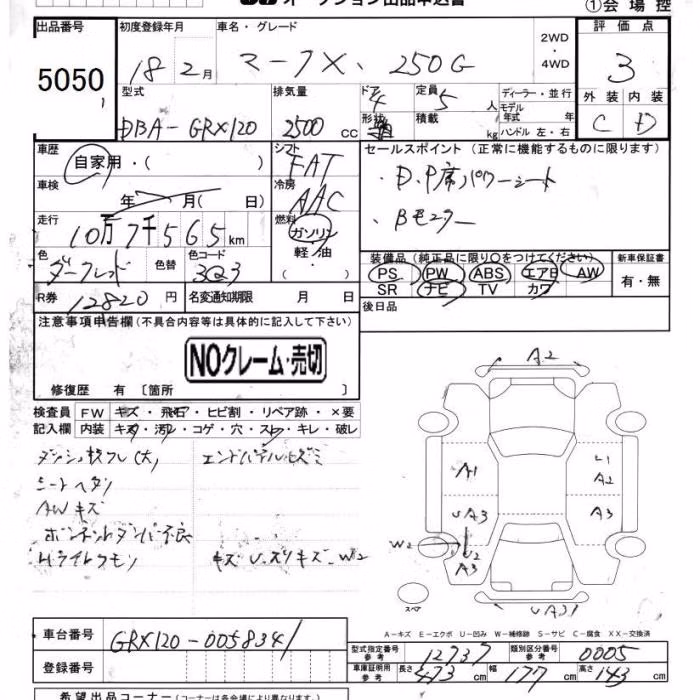 ①会場控
出品番号 5050
初度登録年月 18 2月
車名・グレード マークX、250G
2WD・4WD
評価点 3
外装 C 内装 D
型式 DBA-GRX120
排気量 2500 cc
ドア 4 形状
定員 5 人
積載 kg
ディーラー・並行
モデル年式 年
ハンドル 左・右
車歴 自家用・( )
シフト FAT
セールスポイント (正常に機能するものに限ります)
・D.P席パワーシート
・Bモニター
車検 年 月( 日)
冷房 AAC
走行 10万7千565km
燃料 ガソリン・軽油・( )
色 ダークレッド 色替 色コード 3Q3
装備品 (純正品に限り○をつけてください) 新車保証書
PS PW ABS エアB AW 有・無
SR ナビ TV カワ
R券 12820円 名変通知期限 月 日
後日品
注意事項申告欄 (不具合内容等は具体的に記入して下さい)
NOクレーム・売切
修復歴 有 〔箇所 〕
検査員 FW キズ・飛石・ヒビ割・リペア跡・×要
記入欄 内装 キズ・汚レ・コゲ・穴・スレ・キレ・破レ
ダッシュ
シートヘタリ
AWキズ
ボンネットダンパー不良
Hライトクモリ
キズ U.スリキズ W2
A2
A1
U1
A2
UA3
A3
W2
U2
A3
UA31
スペア
A-キズ E-エクボ U-凹み W-補修跡 S-サビ C-腐食 XX-交換済
車台番号 GRX120-0058341
登録番号
型式指定番号 参考 12737 類別区分番号 参考 0005
車庫証明用 参考 長さ 473cm 幅 177cm 高さ 143cm
希望出品コーナー (コーナーは各会場により異なります。)